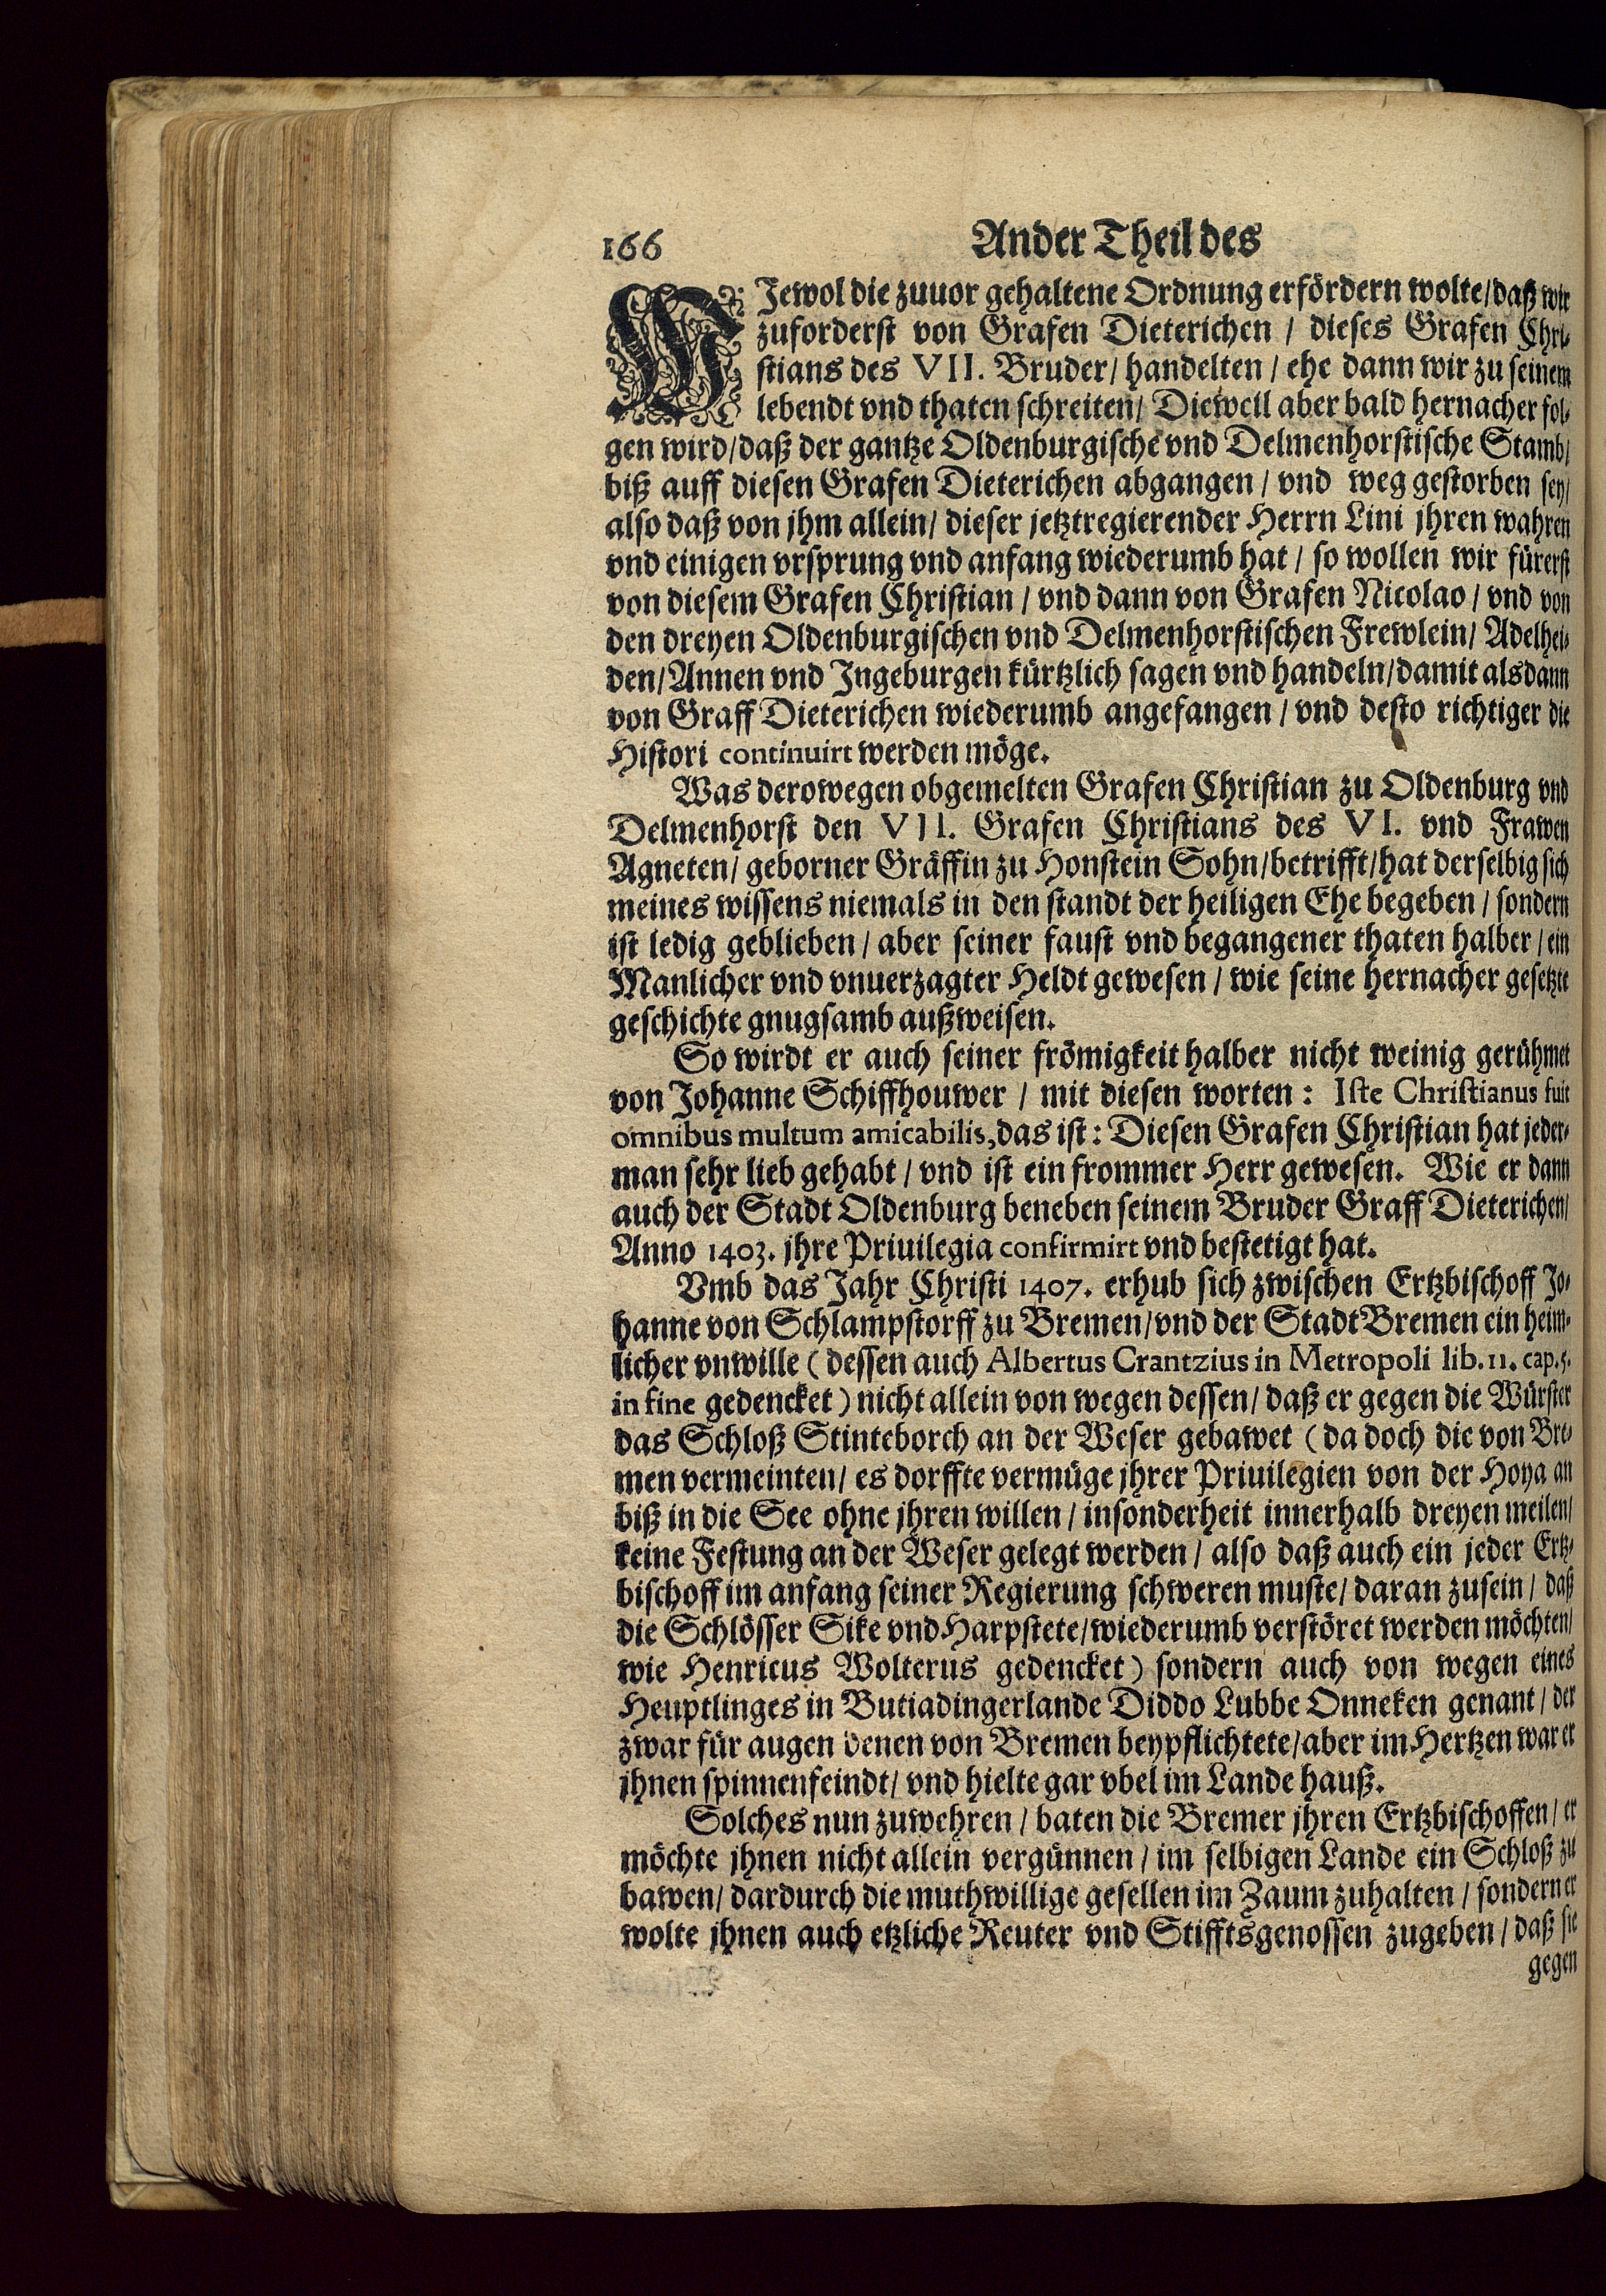 166 Ander Theil des
WJewol die zuuor gehaltene Ordnung erfördern wolte/daß wir
zuforderst von Grafen Dieterichen / dieses Grafen Chri-
stians des VII. Bruder/ handelten / ehe dann wir zu seinem
lebendt vnd thaten schreiten/ Dieweil aber bald hernacher fol-
gen wird/daß der gantze Oldenburgische vnd Delmenhorstische Stamb/
biß auff diesen Grafen Dieterichen abgangen / vnd weg gestorben sey/
also daß von jhm allein/ dieser jetztregierender Herrn Lini jhren wahren
vnd einigen vrsprung vnd anfang wiederumb hat / so wollen wir fürerst
von diesem Grafen Christian / vnd dann von Grafen Nicolao / vnd von
den dreyen Oldenburgischen vnd Delmenhorstischen Frewlein/ Adelhei-
den/Annen vnd Jngeburgen kürtzlich sagen vnd handeln/damit alsdann
von Graff Dieterichen wiederumb angefangen / vnd desto richtiger die
Histori continuirt werden möge.
Was derowegen obgemelten Grafen Christian zu Oldenburg vnd
Delmenhorst den VII. Grafen Christians des VI. vnd Frawen
Agneten/ geborner Gräffin zu Honstein Sohn/betrifft/hat derselbig sich
meines wissens niemals in den standt der heiligen Ehe begeben / sondern
ist ledig geblieben / aber seiner faust vnd begangener thaten halber / ein
Manlicher vnd vnuerzagter Heldt gewesen / wie seine hernacher gesetzte
geschichte gnugsamb außweisen.
So wirdt er auch seiner frömigkeit halber nicht weinig gerühmet
von Johanne Schiffhouwer / mit diesen worten: Iste Christianus fuit
omnibus multum amicabilis, das ist: Diesen Grafen Christian hat jeder-
man sehr lieb gehabt / vnd ist ein frommer Herr gewesen. Wie er dann
auch der Stadt Oldenburg beneben seinem Bruder Graff Dieterichen/
Anno 1403. jhre Priuilegia confirmirt vnd bestetigt hat.
Vmb das Jahr Christi 1407. erhub sich zwischen Ertzbischoff Jo-
hanne von Schlampstorff zu Bremen/vnd der Stadt Bremen ein heim-
licher vnwille (dessen auch Albertus Crantzius in Metropoli lib. 11. cap. 5.
in fine gedencket) nicht allein von wegen dessen/ daß er gegen die Würster
das Schloß Stinteborch an der Weser gebawet (da doch die von Bre-
men vermeinten/ es dorffte vermüge jhrer Priuilegien von der Hoya an
biß in die See ohne jhren willen / insonderheit innerhalb dreyen meilen/
keine Festung an der Weser gelegt werden / also daß auch ein jeder Ertz-
bischoff im anfang seiner Regierung schweren muste/ daran zusein / daß
die Schlösser Sike vnd Harpstete/wiederumb verstöret werden möchten/
wie Henricus Wolterus gedencket) sondern auch von wegen eines
Heuptlinges in Butiadingerlande Diddo Lubbe Onneken genant / der
zwar für augen denen von Bremen beypflichtete/aber im Hertzen war er
jhnen spinnenfeindt/ vnd hielte gar vbel im Lande hauß.
Solches nun zuwehren / baten die Bremer jhren Ertzbischoffen / er
möchte jhnen nicht allein vergünnen / im selbigen Lande ein Schloß zu
bawen/ dardurch die muthwillige gesellen im Zaum zuhalten / sondern er
wolte jhnen auch etzliche Reuter vnd Stifftsgenossen zugeben / daß sie
gegen